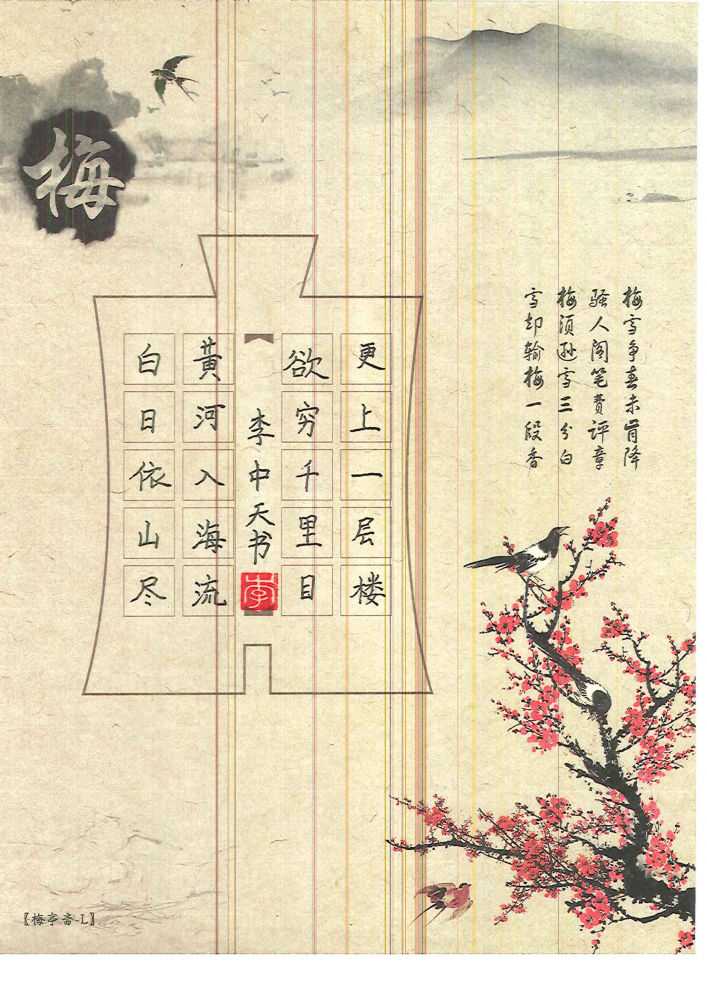 梅
梅雪争春未肯降
骚人阁笔费评章
梅须逊雪三分白
雪却输梅一段香
白日依山尽
黄河入海流
欲穷千里目
更上一层楼
李中天书
李
〖梅亭斋-L〗